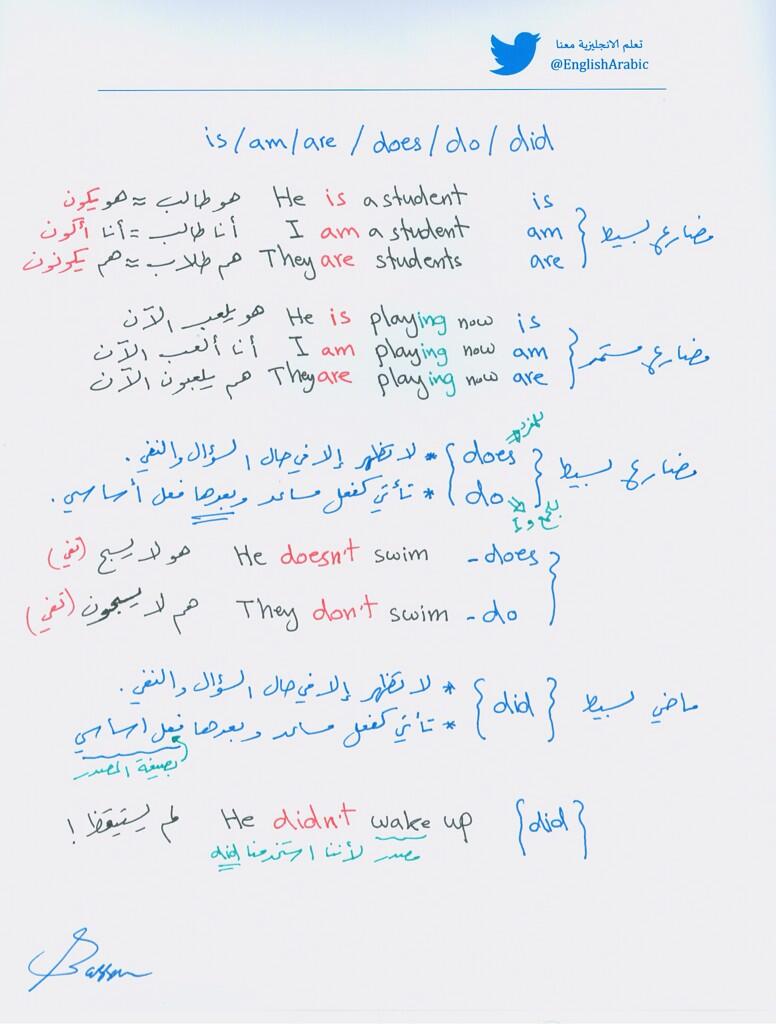 تعلم الانجليزية معنا
@EnglishArabic
is/am/are / does/do/ did
مضارع بسيط } is He is a student هو طالب = هو يكون
am I am a student أنا طالب = أنا أكون
are They are students هم طلاب = هم يكونون
مضارع مستمر } is He is playing now هو يلعب الآن
am I am playing now أنا ألعب الآن
are They are playing now هم يلعبون الآن
للمفرد
مضارع بسيط { does } * لا تظهر إلا في حال السؤال والنفي.
{ do } * تأتي كفعل مساعد وبعدها فعل أساسي.
للجمع و I
- does He doesn't swim هو لا يسبح (نفي)
- do They don't swim هم لا يسبحون (نفي)
ماضي بسيط { did } * لا تظهر إلا في حال السؤال والنفي.
* تأتي كفعل مساعد وبعدها فعل اساسي
بصيغة المصدر
{did} He didn't wake up لم يستيقظ !
مصدر لأننا استخدمنا did